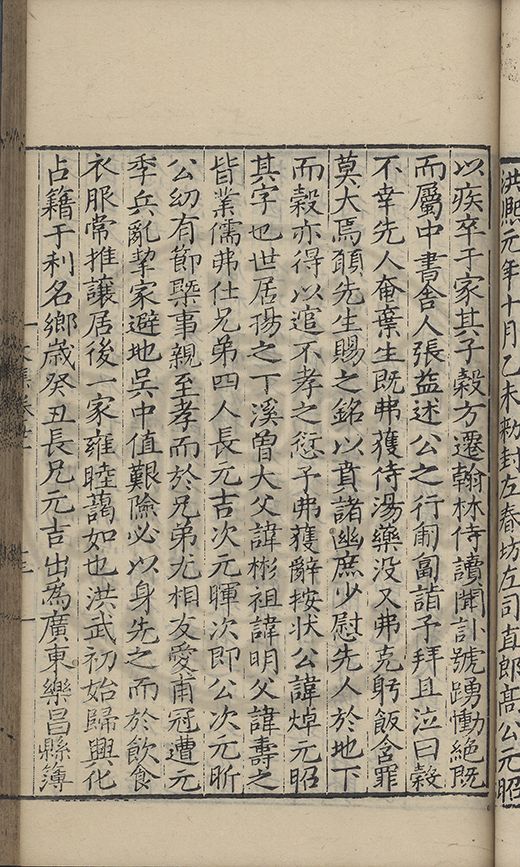 洪熙元年十月乙未勑封左春坊左司直郎高公元昭
以疾卒于家其子穀方遷翰林侍讀聞訃號踴慟絶既
而屬中書舍人張益述公之行匍匐詣予拜且泣曰穀
不幸先人奄棄生既弗獲侍湯藥没又弗克躬飯含罪
莫大焉願先生賜之銘以賁諸幽庶少慰先人於地下
而穀亦得以逭不孝之愆予弗獲辭按状公諱焯元昭
其字也世居揚之丁溪曾大父諱彬祖諱明父諱壽之
皆業儒弗仕兄弟四人長元古次元暉次即公次元昕
公幼有節槩事親至孝而於兄弟尤相友愛甫冠遭元
季兵亂挈家避地吳中值艱險必以身先之而於飲食
衣服常推讓居後一家雍睦藹如也洪武初始歸興化
占籍于利名鄉歳癸丑長兄元吉出為廣東樂昌縣簿